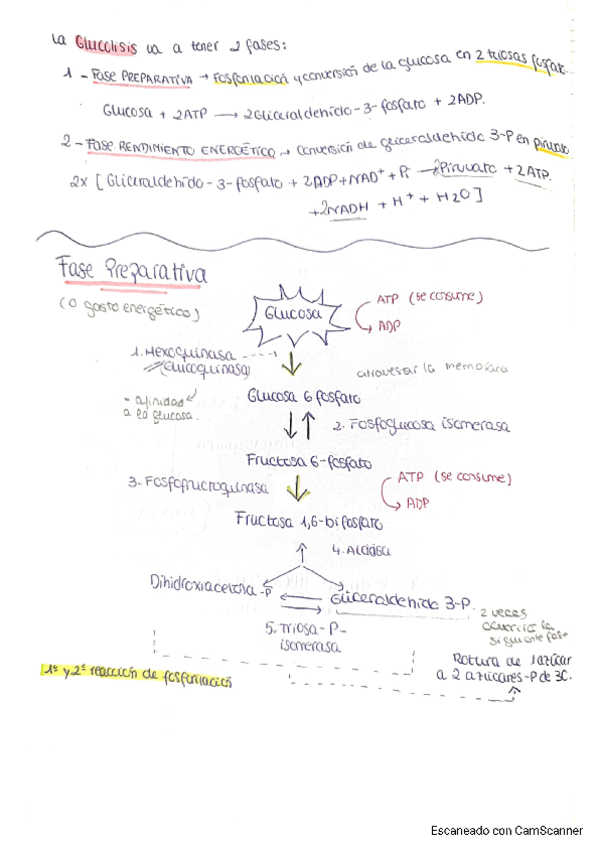 La Glucolisis va a tener 2 fases:
1 - FASE PREPARATIVA → Fosforilación y conversión de la glucosa en 2 triosas fosfato.
Glucosa + 2ATP → 2Gliceraldehído-3-fosfato + 2ADP.
2 - FASE RENDIMIENTO ENERGÉTICO → conversión de gliceraldehído 3-P en piruvato
2x [Gliceraldehído-3-fosfato + 2ADP + NAD⁺ + Pi → Piruvato + 2ATP.
+ 2NADH + H⁺ + H2O]
Fase Preparativa
(o gasto energético)
Glucosa
ATP (se consume)
ADP
1. Hexoquinasa
(Glucoquinasa)
atravesar la membrana
- afinidad
a la glucosa.
Glucosa 6 fosfato
2. Fosfoglucosa isomerasa
Fructosa 6-fosfato
3. Fosfofructoquinasa
ATP (se consume)
ADP
Fructosa 1,6-bifosfato
4. Aldolasa
Dihidroxiacetona-P
Gliceraldehído 3-P.
5. Triosa-P-
isomerasa
2 veces
ocurrirá la
siguiente fase
Rotura de 1 azúcar
a 2 azúcares-P de 3C.
1ª y 2ª reacción de fosforilación
Escaneado con CamScanner